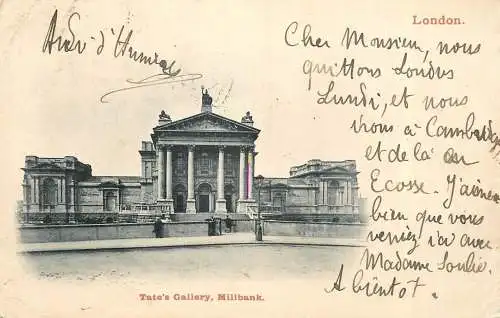 London.
Cher Monsieur, nous
quittons Londres
Lundi, et nous
irons à Cambridge
et de là en
Ecosse. J'aimerais
bien que vous
veniez ici avec
Madame Soulié.
A bientôt.
Tate's Gallery, Millbank.